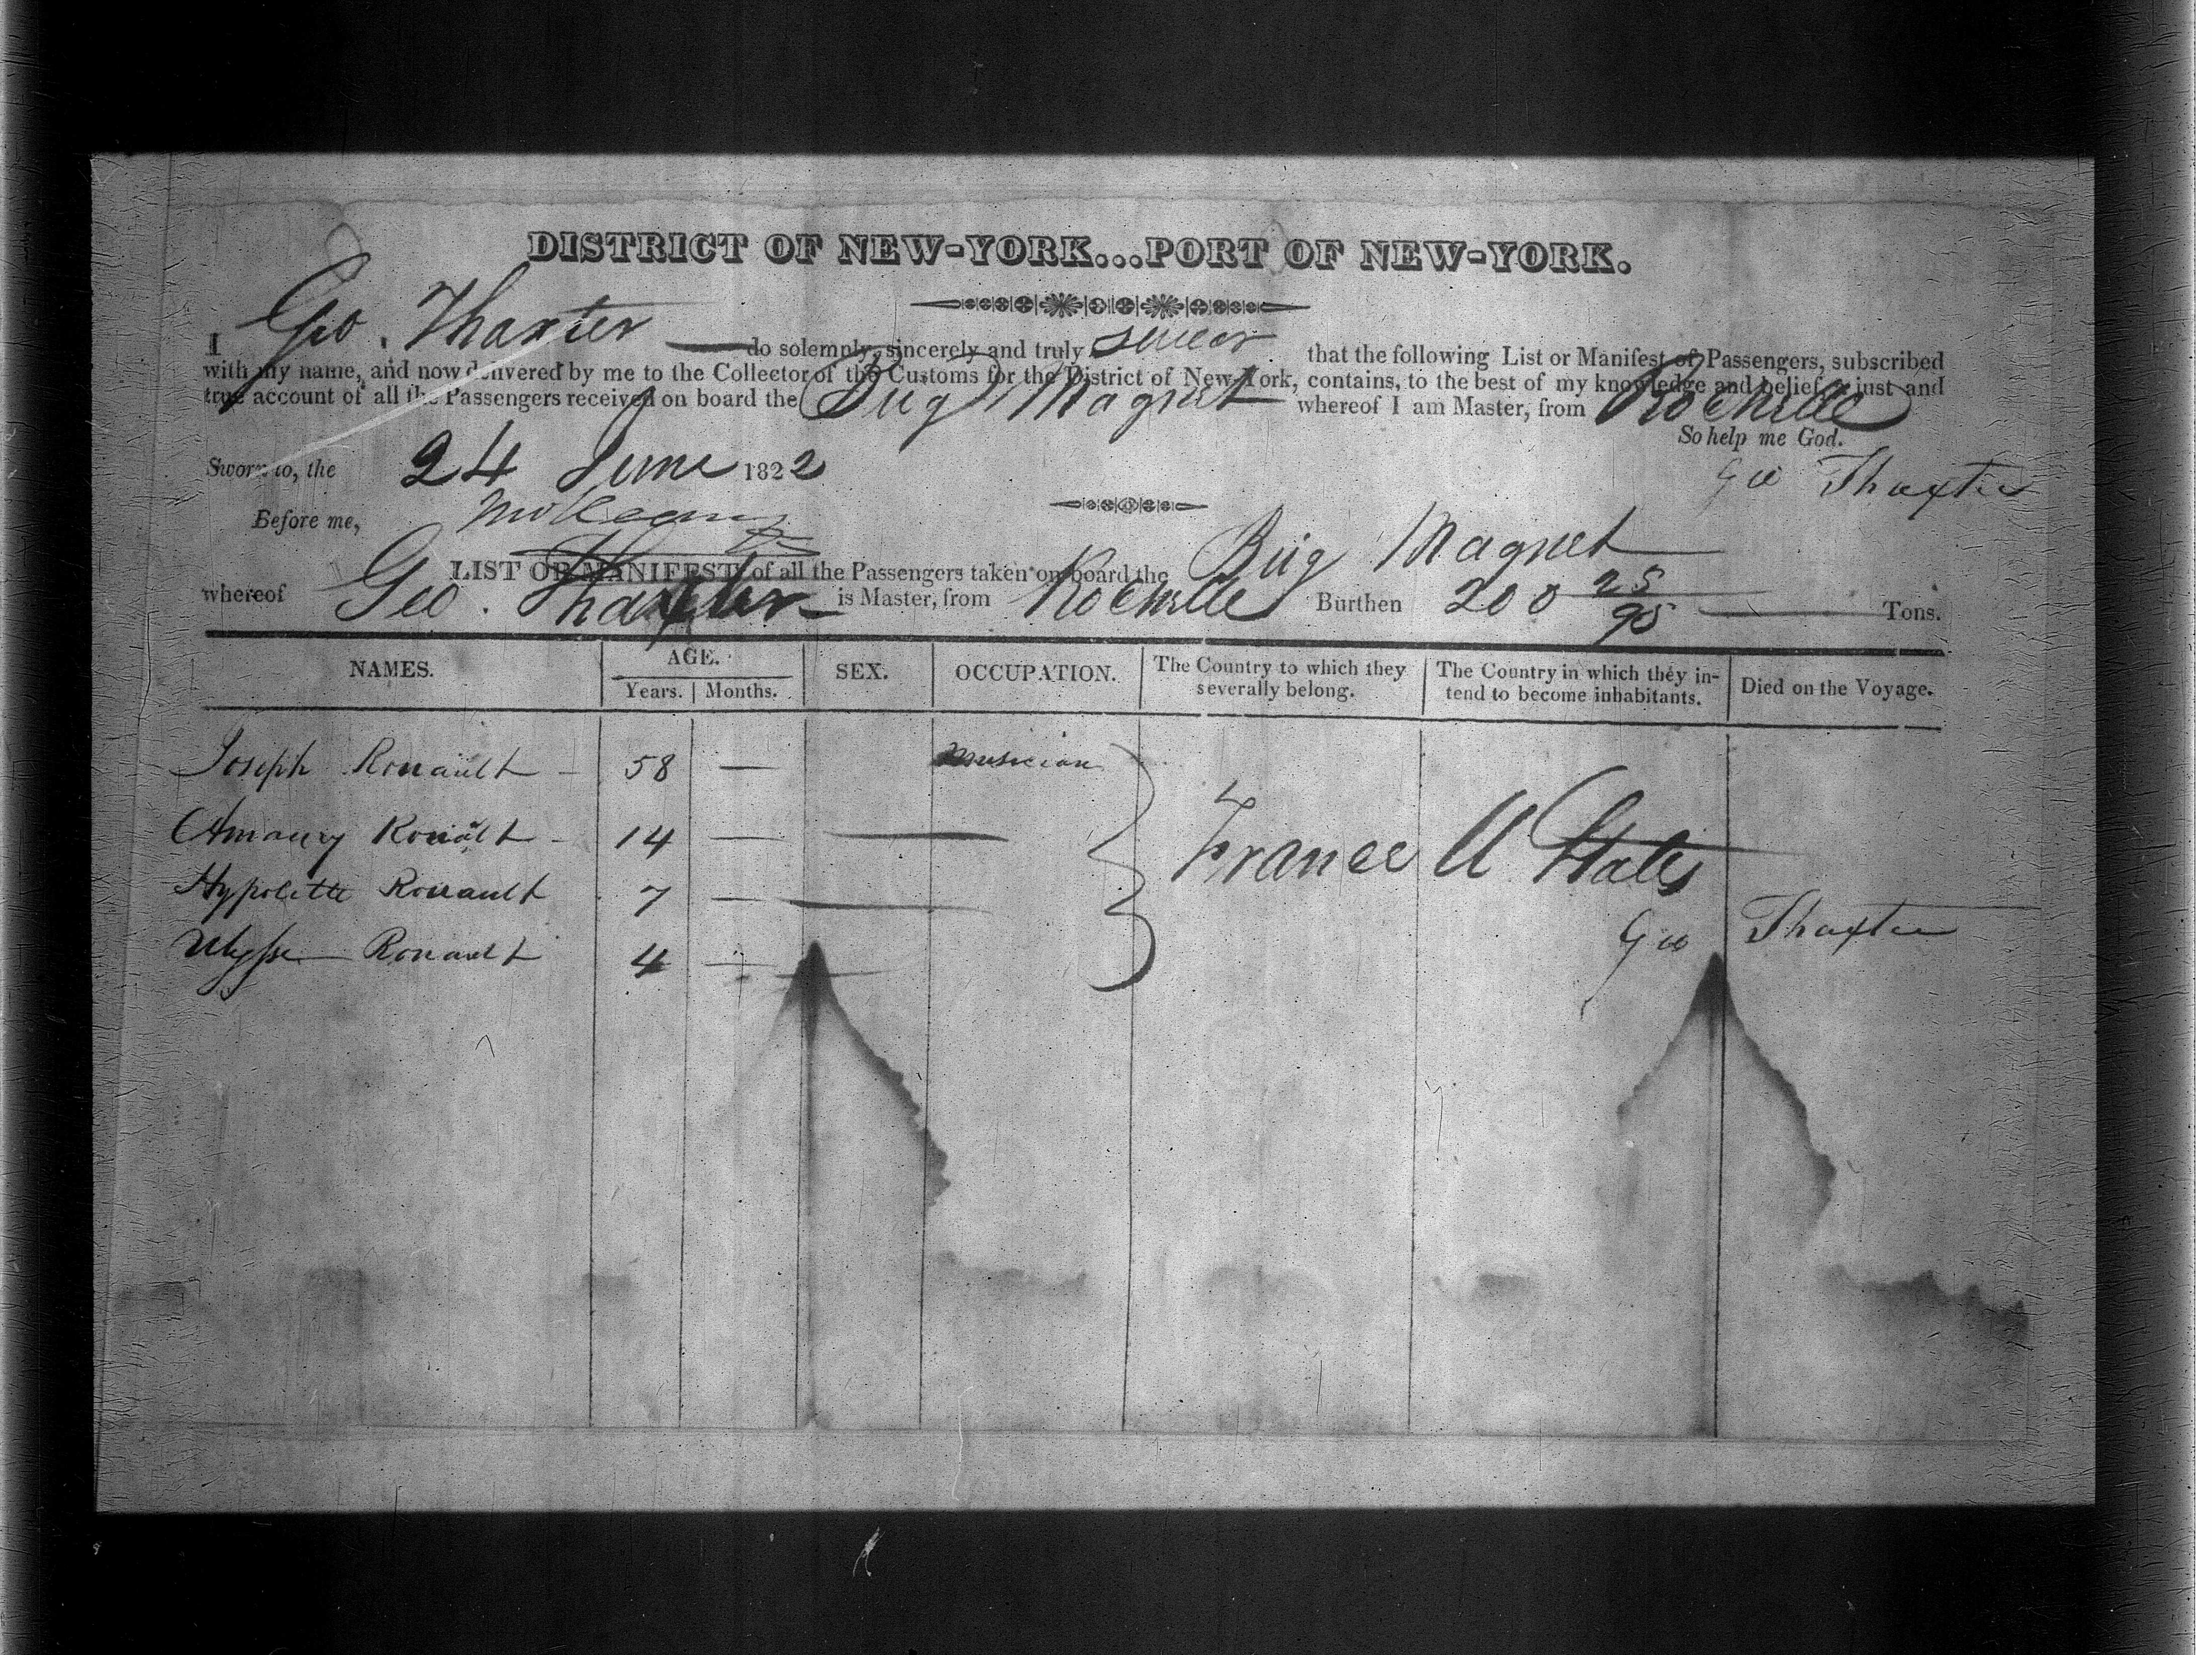 DISTRICT OF NEW-YORK...PORT OF NEW-YORK.
I Geo. Thaxter do solemnly, sincerely and truly swear that the following List or Manifest of Passengers, subscribed
with my name, and now delivered by me to the Collector of the Customs for the District of New-York, contains, to the best of my knowledge and belief, a just and
true account of all the Passengers received on board the Brig Magnet whereof I am Master, from Rochelle
So help me God.
Sworn to, the 24 June 1822
Geo Thaxter
Before me,
LIST OR MANIFEST of all the Passengers taken on board the Brig Magnet
whereof Geo. Thaxter is Master, from Rochelle Burthen 200 25/95 Tons.
NAMES. AGE. SEX. OCCUPATION. The Country to which they severally belong. The Country in which they in-tend to become inhabitants. Died on the Voyage.
Years. Months.
Joseph Rouault - 58 — Musician
Amaury Rouault - 14 —
France U States
Hypolitte Rouault 7 —
Geo Thaxter
Ulysse Rouault 4 —